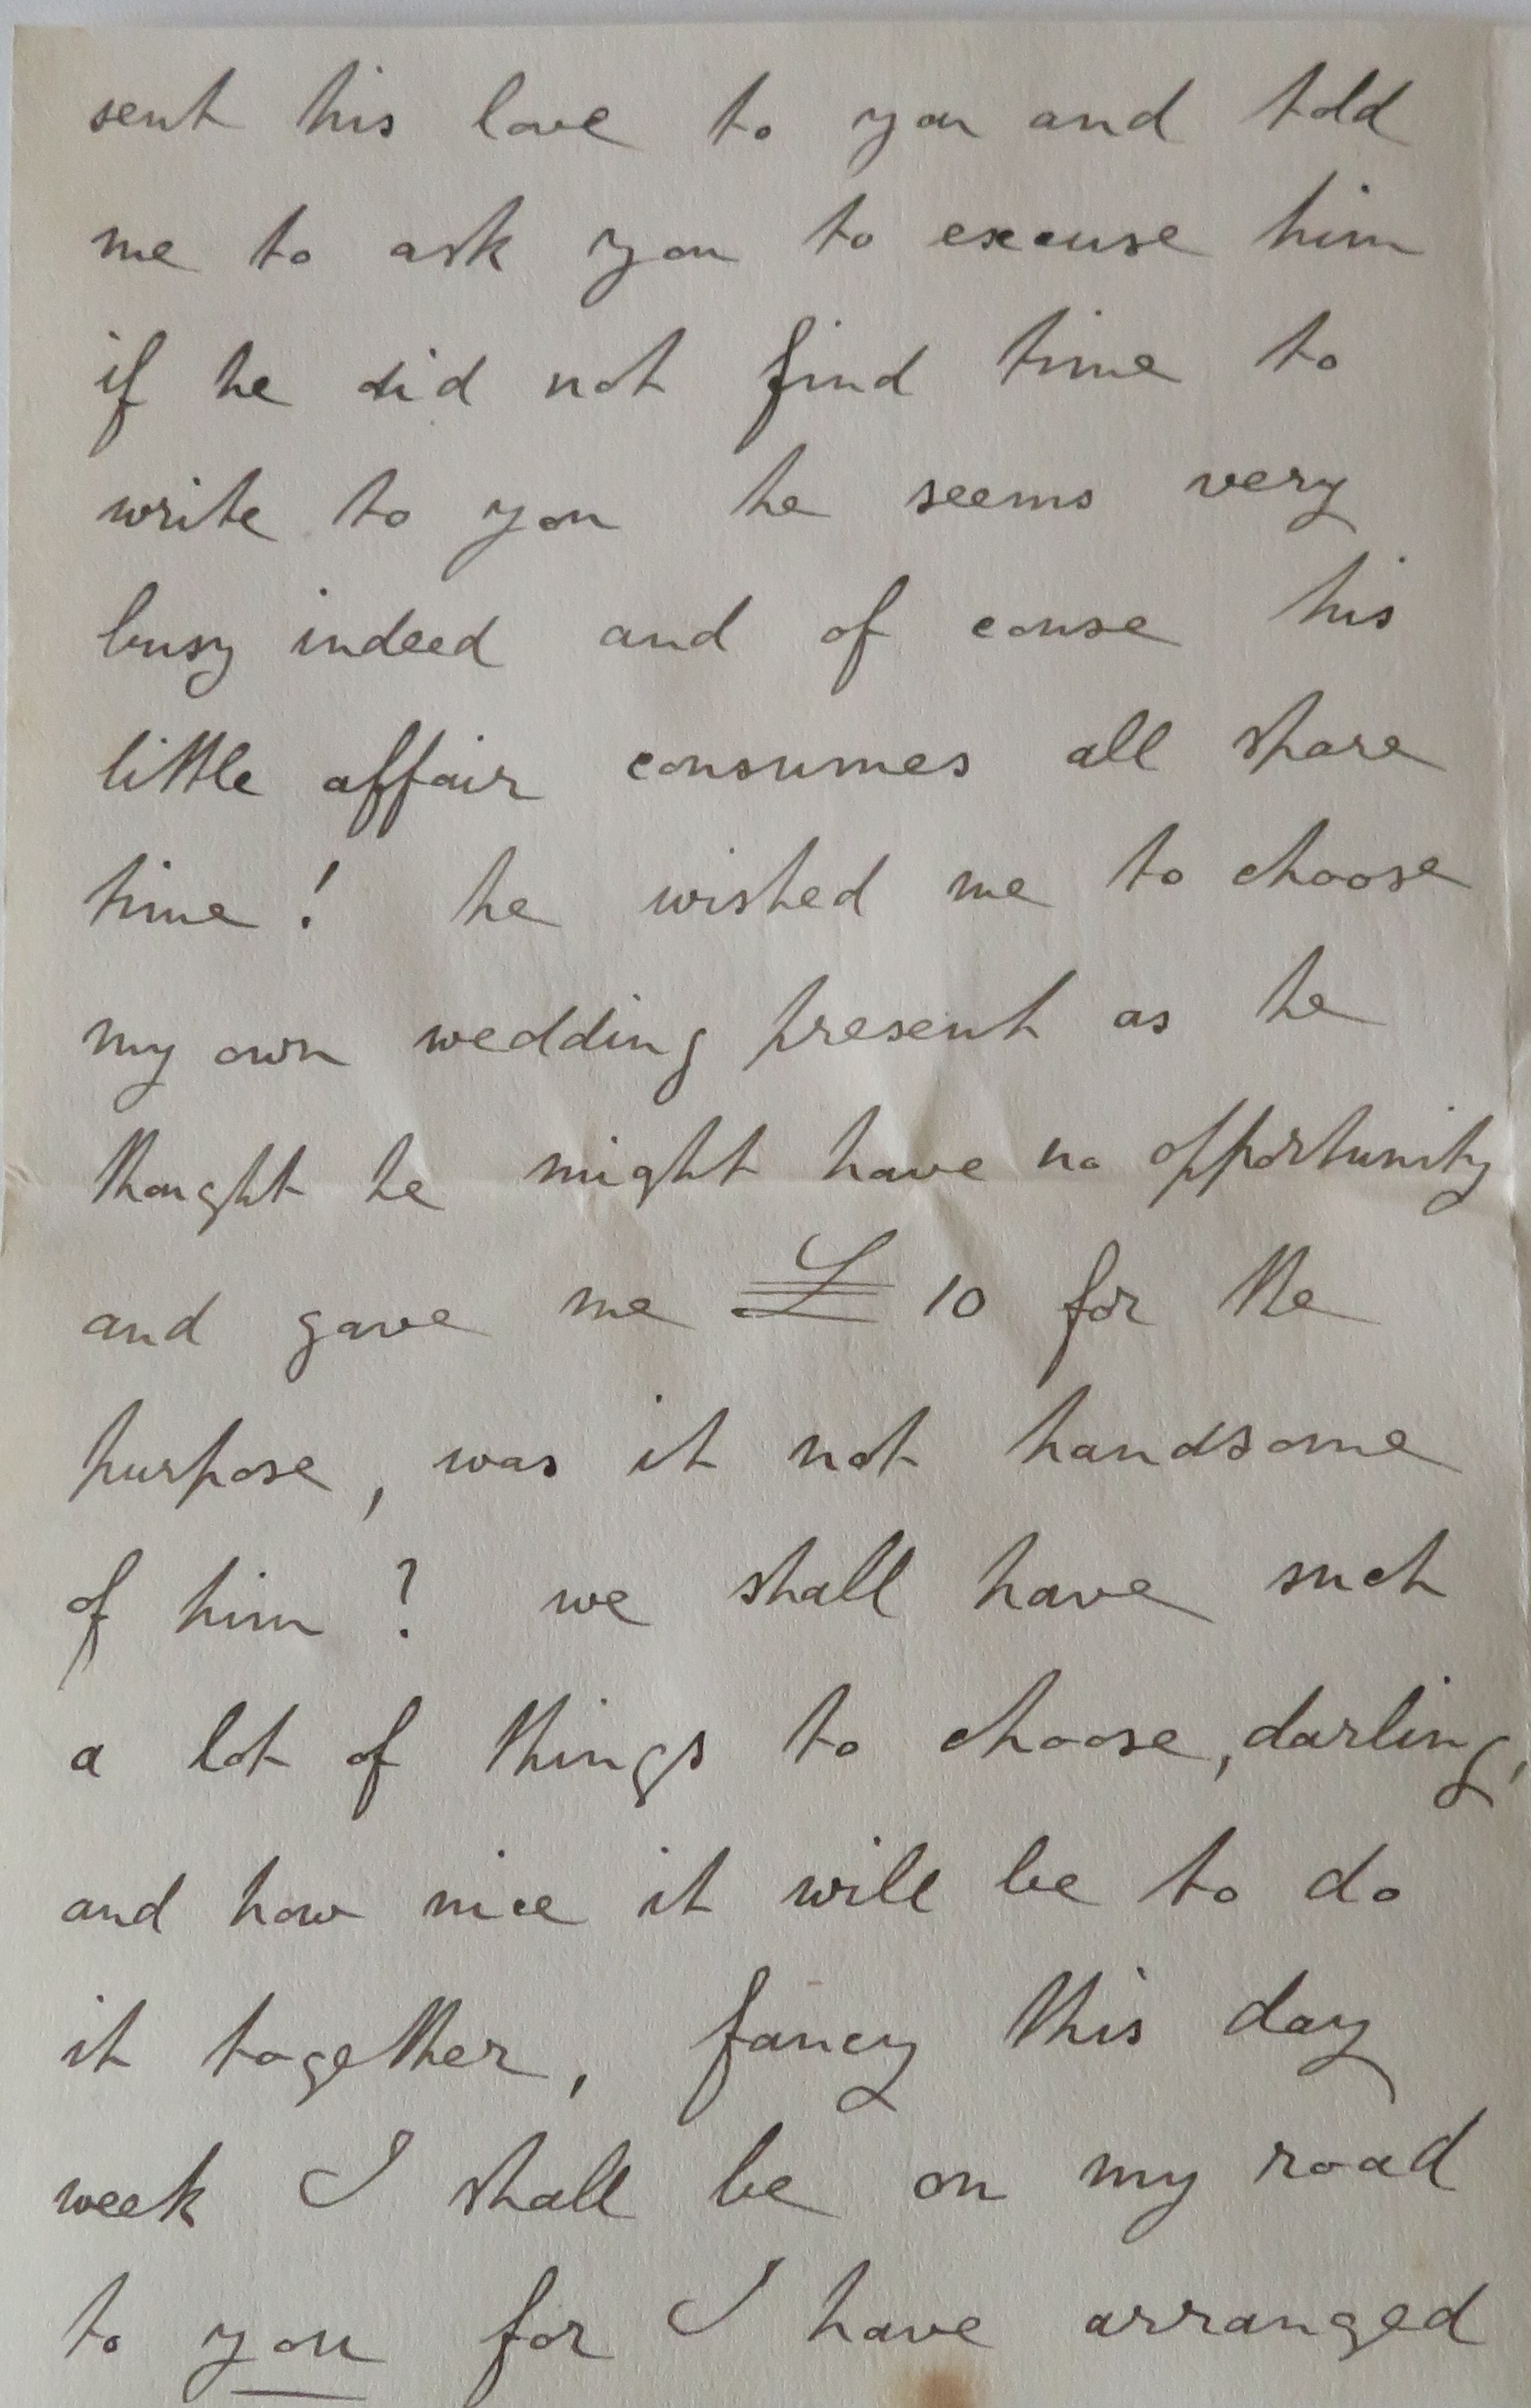 sent his love to you and told
me to ask you to excuse him
if he did not find time to
write to you he seems very
busy indeed and of couse his
little affair consumes all spare
time! he wished me to choose
my own wedding present as he
thought he might have no opportunity
and gave me £10 for the
purpose, was it not handsome
of him? we shall have such
a lot of things to choose, darling,
and how nice it will be to do
it together, fancy this day
week I shall be on my road
to you for I have arranged